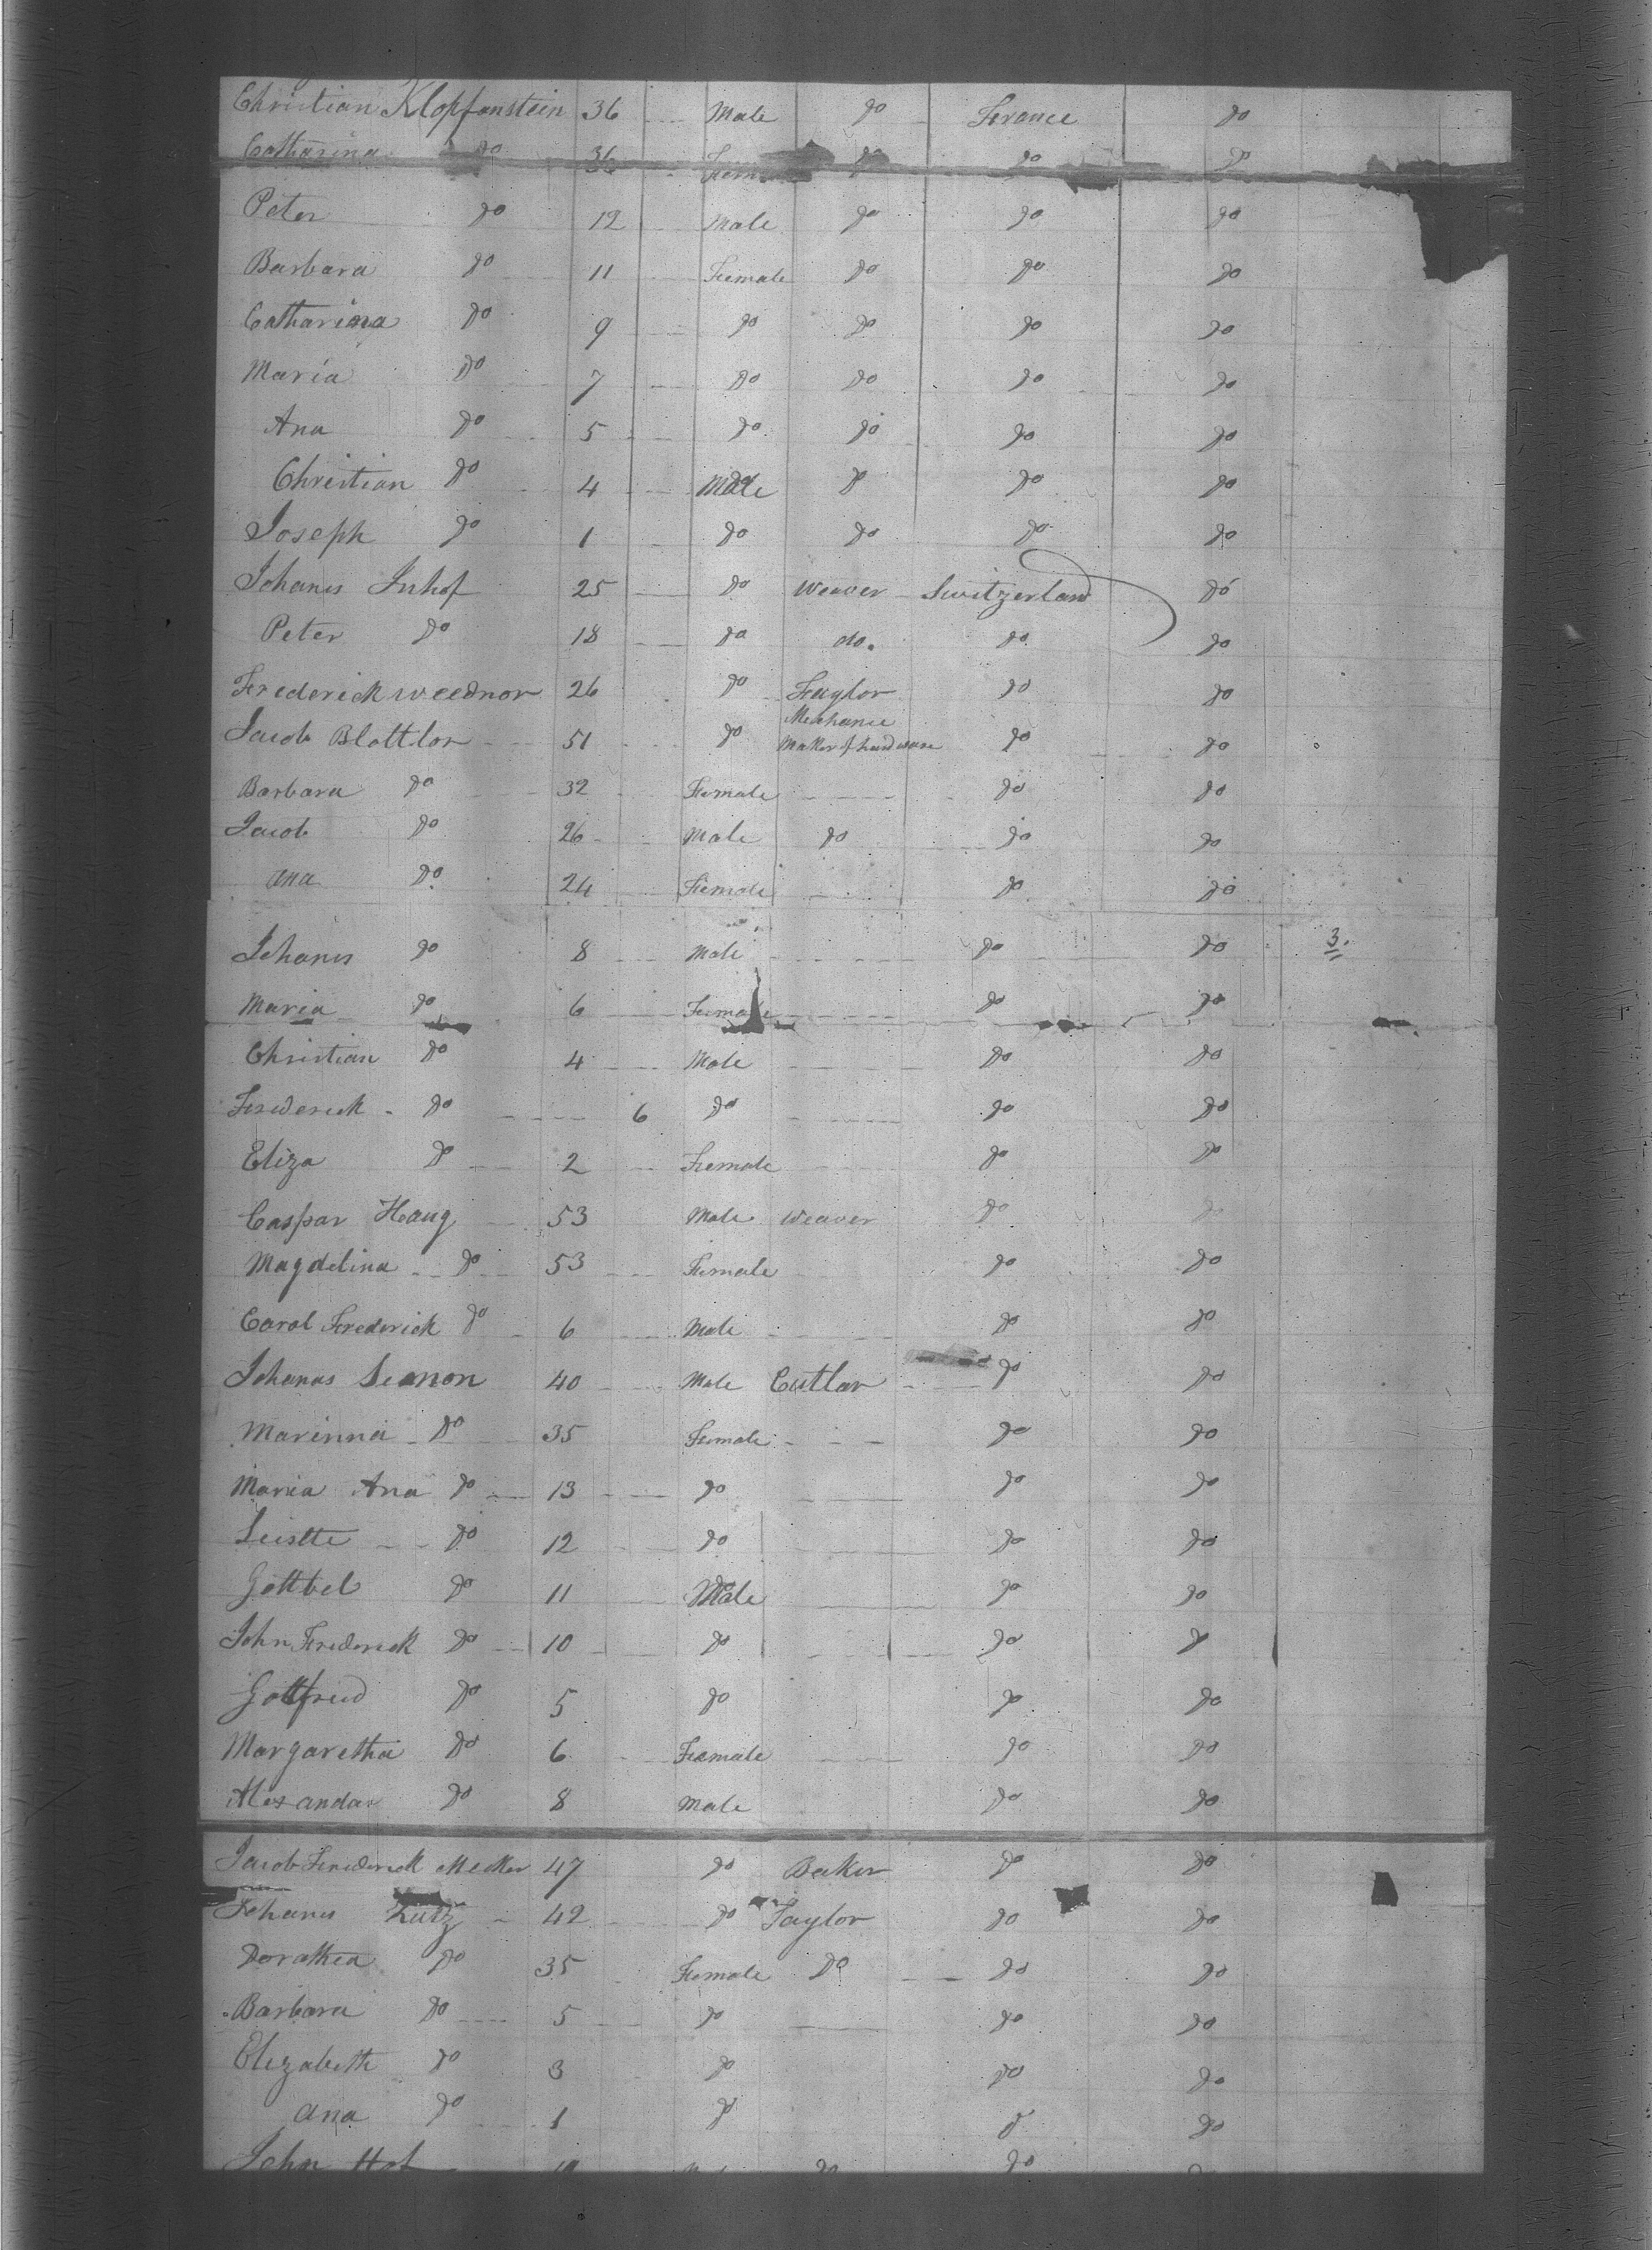 Christian Klopfenstein 36 Male do France do
Catharina do 36 Fem do do do
Peter do 12 Male do do do
Barbara do 11 Female do do do
Catharina do 9 do do do do
Maria do 7 do do do do
Ana do 5 do do do do
Christian do 4 Male do do do
Joseph do 1 do do do do
Johanis Inhof 25 do Weaver Switzerland do
Peter do 18 do do. do do
Frederick Weednor 26 do Taylor do do
Jacob Blattlor 51 do Mechanic Maker of hardware do do
Barbara do 32 Female do do
Jacob do 26 Male do do do
Ana do 24 Female do do
Johanis do 8 Male do do 3.
Maria do 6 Female do do
Christian do 4 Male do do
Frederick do 6 do do do
Eliza do 2 Female do do
Caspar Haug 53 Male Weaver do do
Magdelina do 53 Female do do
Carol Frederick do 6 Male do do
Johanas Seanon 40 Male Cutlar do do
Marinna do 35 Female do do
Maria Ana do 13 do do do
Leistte do 12 do do do
Gottbel do 11 Male do do
John Frederick do 10 do do do
Gottfried do 5 do do do
Margaretha do 6 Female do do
Alexandar do 8 Male do do
Jacob Frederick Mecker 47 do Baker do do
Johanis Lutz 42 do Taylor do do
Dorathea do 35 Female Do do do
Barbara do 5 do do do
Elizabeth do 3 do do do
Ana do 1 do do do
John do do